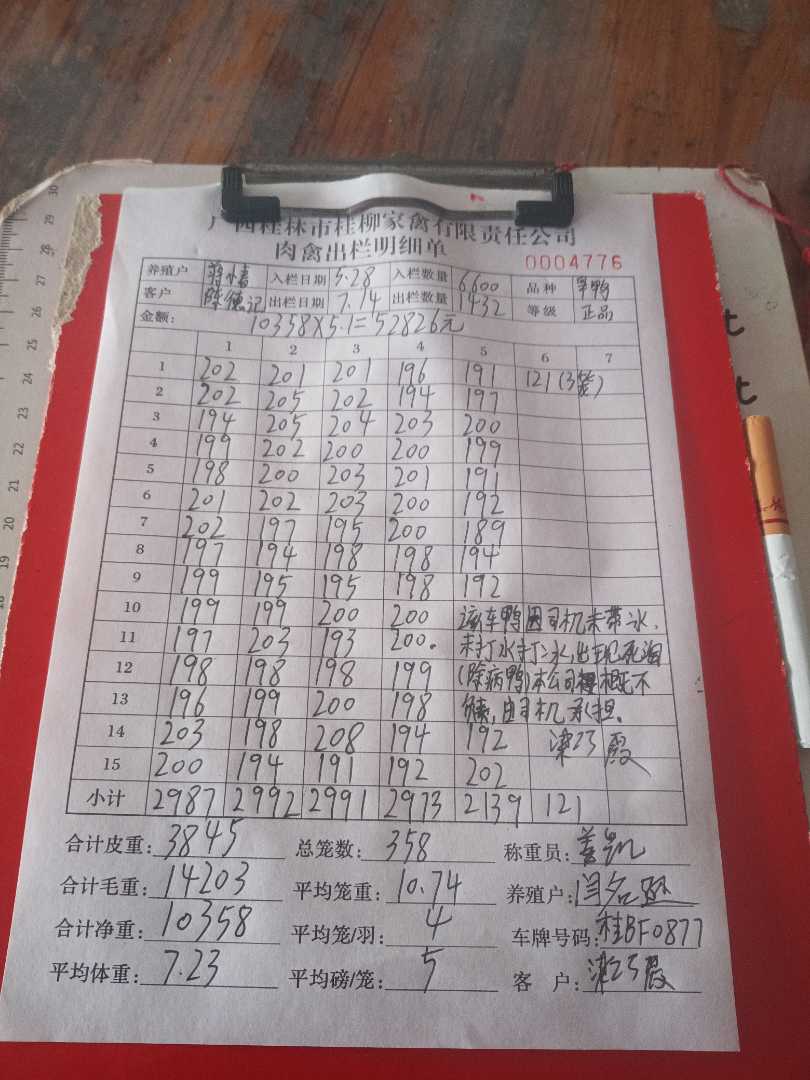 广西桂林市桂柳家禽有限责任公司
肉禽出栏明细单
0004776
养殖户 入栏日期 5.28 入栏数量 6600 品种
客户 陈德记 出栏日期 7.14 出栏数量 1432 等级 正品
金额: 10358×5.1=52826元
1 2 3 4 5 6 7
1 202 201 201 196 191 121(3笼)
2 202 205 202 194 197
3 194 205 204 203 200
4 199 202 200 200 199
5 198 200 203 201 191
6 201 202 203 200 192
7 202 197 195 200 189
8 197 194 198 198 194
9 199 195 195 198 192
10 199 199 200 200 该车鸭因司机未带冰.
11 197 203 193 200. 未打水打冰,出现死淘
12 198 198 198 199 (除病鸭)本公司概不
13 196 199 200 198 由司机承担.
14 203 198 208 194 192
15 200 194 191 192 202
小计 2987 2992 2991 2973 2139 121
合计皮重: 3845 总笼数: 358 称重员:
合计毛重: 14203 平均笼重: 10.74 养殖户:
合计净重: 10358 平均笼/羽: 4 车牌号码: 桂BF0877
平均体重: 7.23 平均磅/笼: 5 客 户:
30
29
28
27
26
25
24
23
22
21
20
19
18